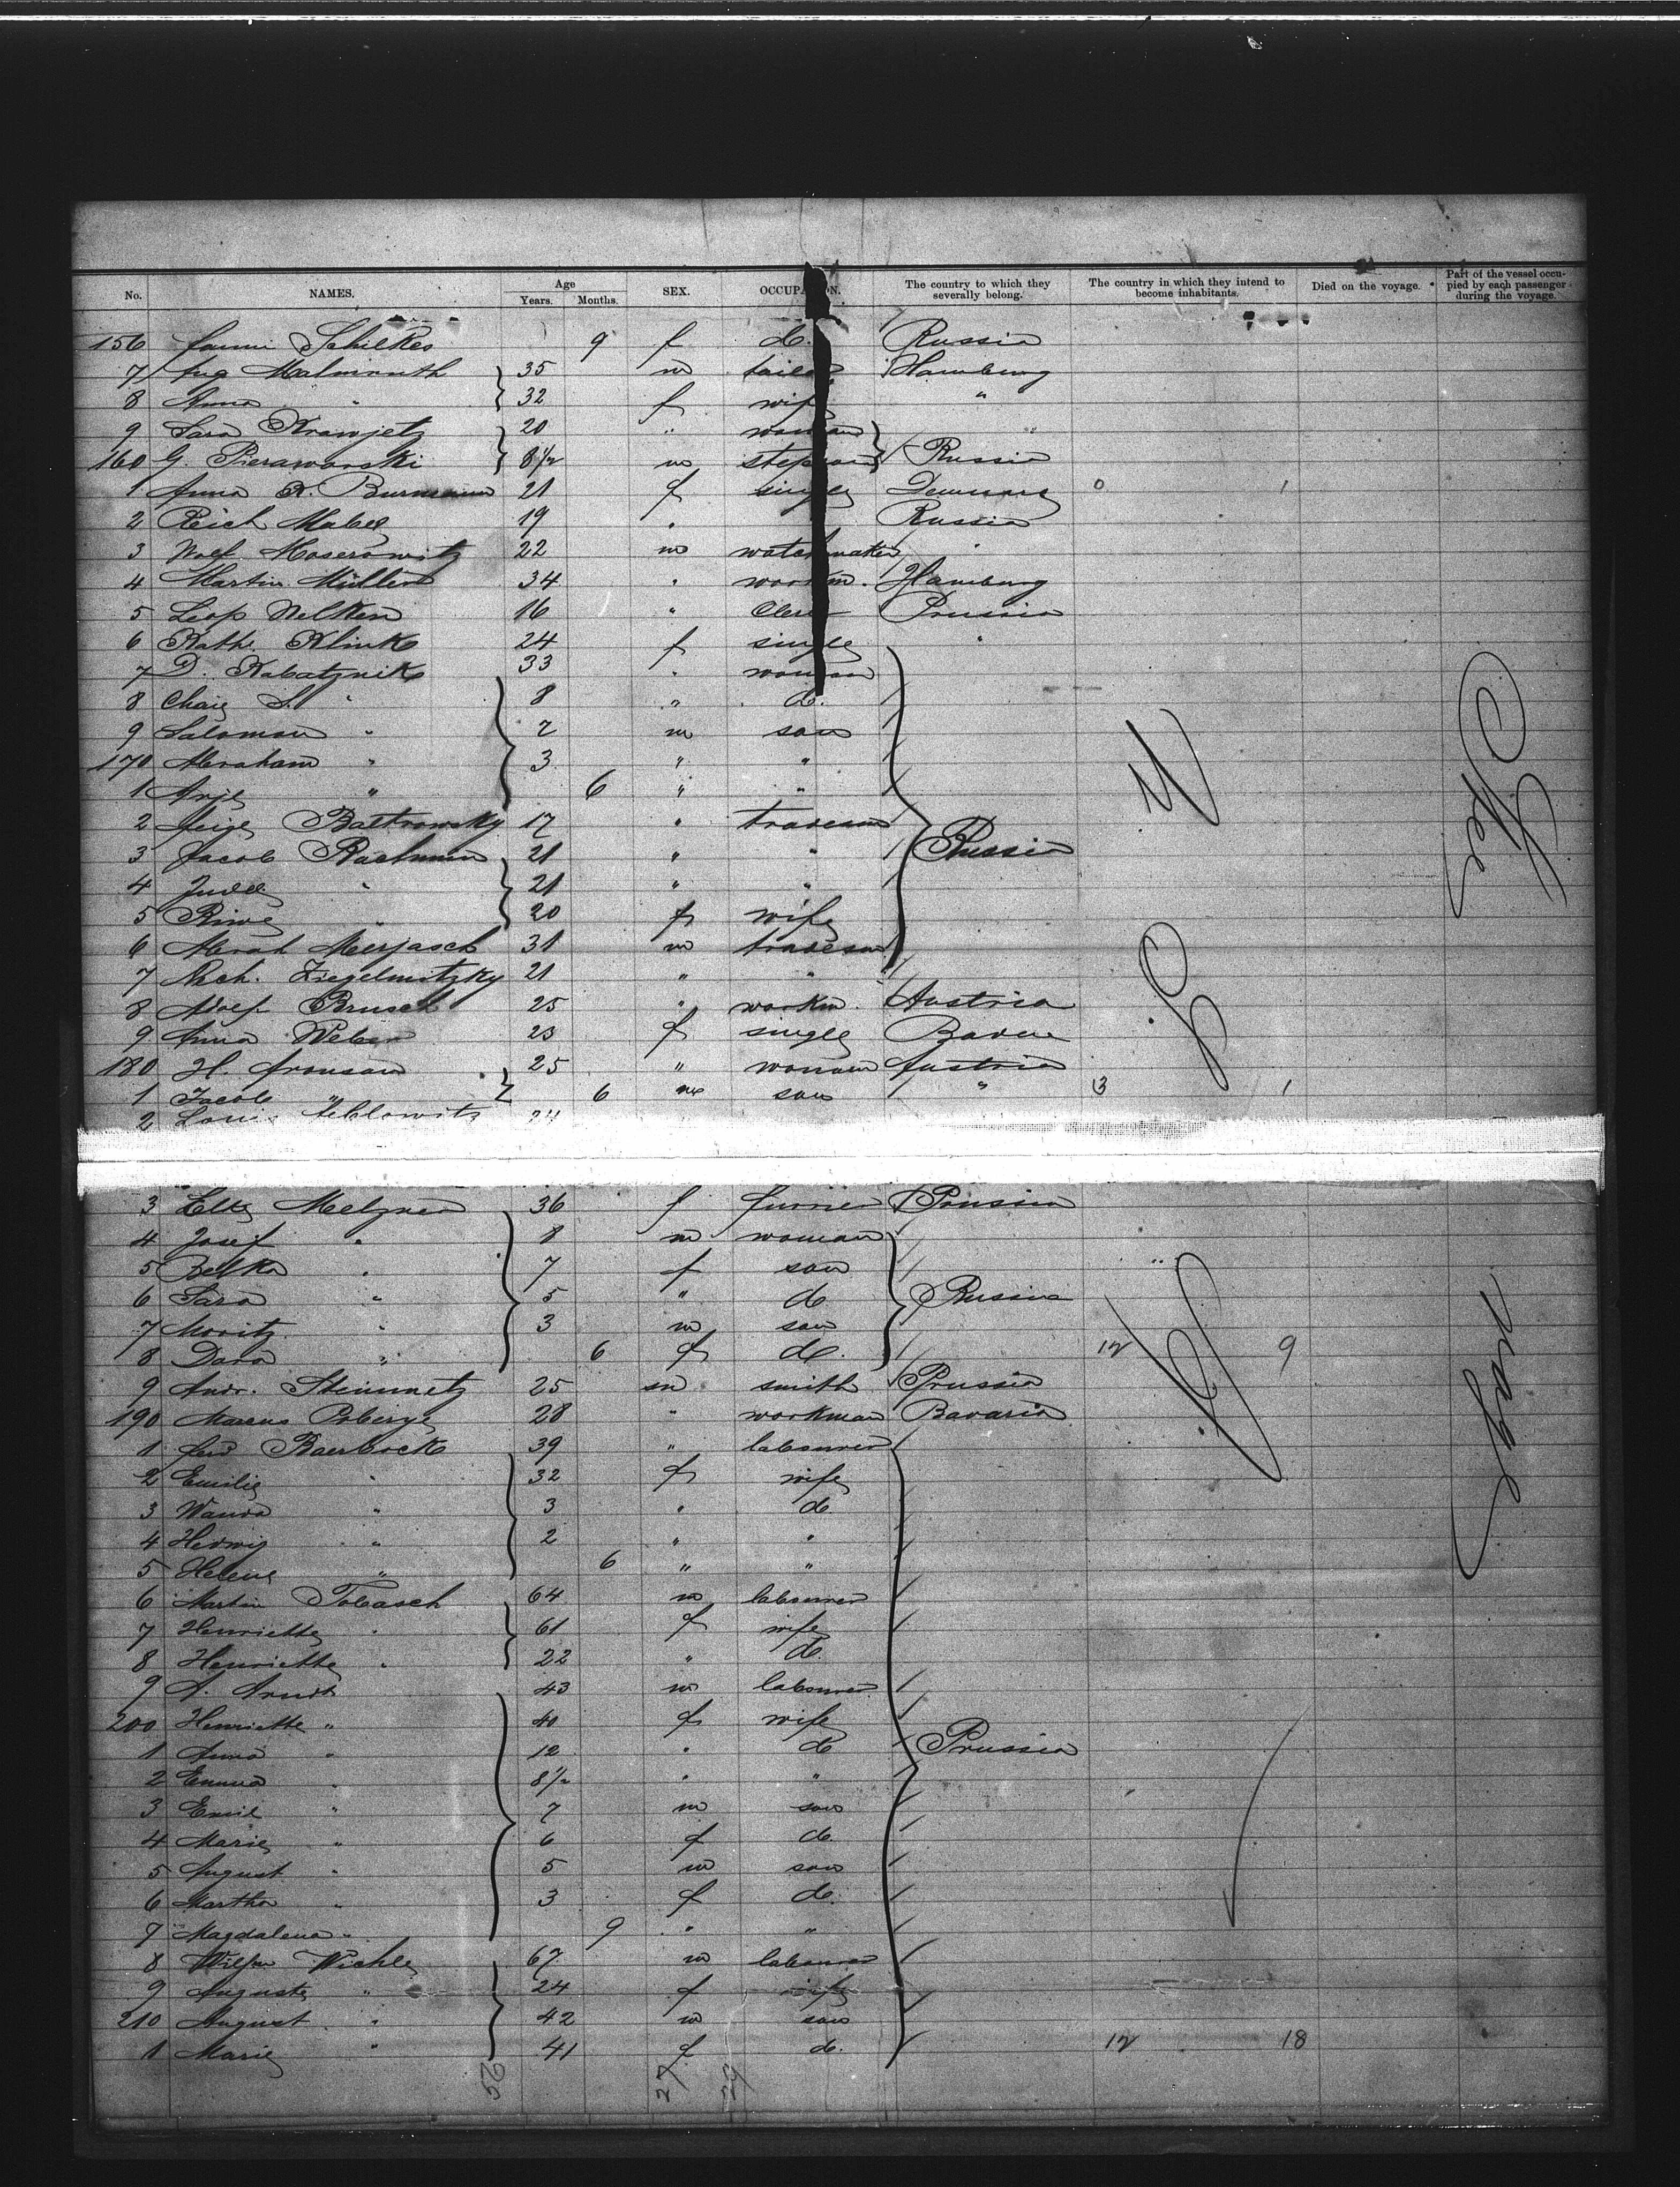 No. NAMES. Age Years. Months. SEX. OCCUPATION. The country to which they severally belong. The country in which they intend to become inhabitants. Died on the voyage. Part of the vessel occupied by each passenger during the voyage.
156 Schilkes 9 f d. Russia
7 Aug Malmouth 35 m tailor Hamburg
8 Anna " 32 f wife "
9 Sara Krawjetz 20 " woman
160 G. Pierawarski 8 1/2 m stepson Russia
1 Anna K. 21 f single 0 1
2 Reich Mabel 19 " Russia
3 Wolf Moserowitz 22 m watchmaker "
4 Martin Müller 34 " workm. Hamburg
5 Leop Nelken 16 " Clerk Prussia
6 Kath. Klink 24 f single "
7 D. Kabatznik 33 " woman
8 Chaie S. " 8 " d.
9 Salomon " 7 m son
170 Abraham " 3 " "
1 Arje " 6 " "
2 Baltrowsky 17 " tradesm
3 Jacob 21 " " Russia
4 " 21 " "
5 Riwe " 20 f wife
6 Abrah Meyjasch 31 m tradesm
7 Ziegelnitzky 21 " "
8 Adolf Brusch 25 " workm. Austria
9 Anna Weber 23 f single Baden
180 H. Aronson 25 " woman Austria
1 Jacob " 6 m son " 3 1
2 24
3 Elke Melzner 36 f furrier Prussia
4 Josef " 8 m woman
5 Belka " 7 f son
6 Sara " 5 " d. Russia
7 Moritz " 3 m son
8 Dara " 6 f d. 12 9
9 Andr. Steinmetz 25 m smith Prussia
190 Marcus 28 " workman Bavaria
1 Ferd Baerbock 39 " labourer
2 Emilie " 32 f wife
3 Wanda " 3 " d.
4 Hedwig " 2 " "
5 Helene " 6 " "
6 Martin Tobasch 64 m labourer
7 Henriette " 61 f wife
8 Henriette " 22 " d.
9 A. Arndt 43 m labourer
200 Henriette " 40 f wife
1 Anna " 12 " d. Prussia
2 Emma " 8 1/2 " "
3 Emil " 7 m son
4 Marie " 6 f d.
5 August " 5 m son
6 Martha " 3 f d.
7 Magdalena " 9 " "
8 Wichle 67 m labourer
9 Auguste " 24 f wife
210 August " 42 m son
1 Marie " 41 f d. 12 18
25 27 29